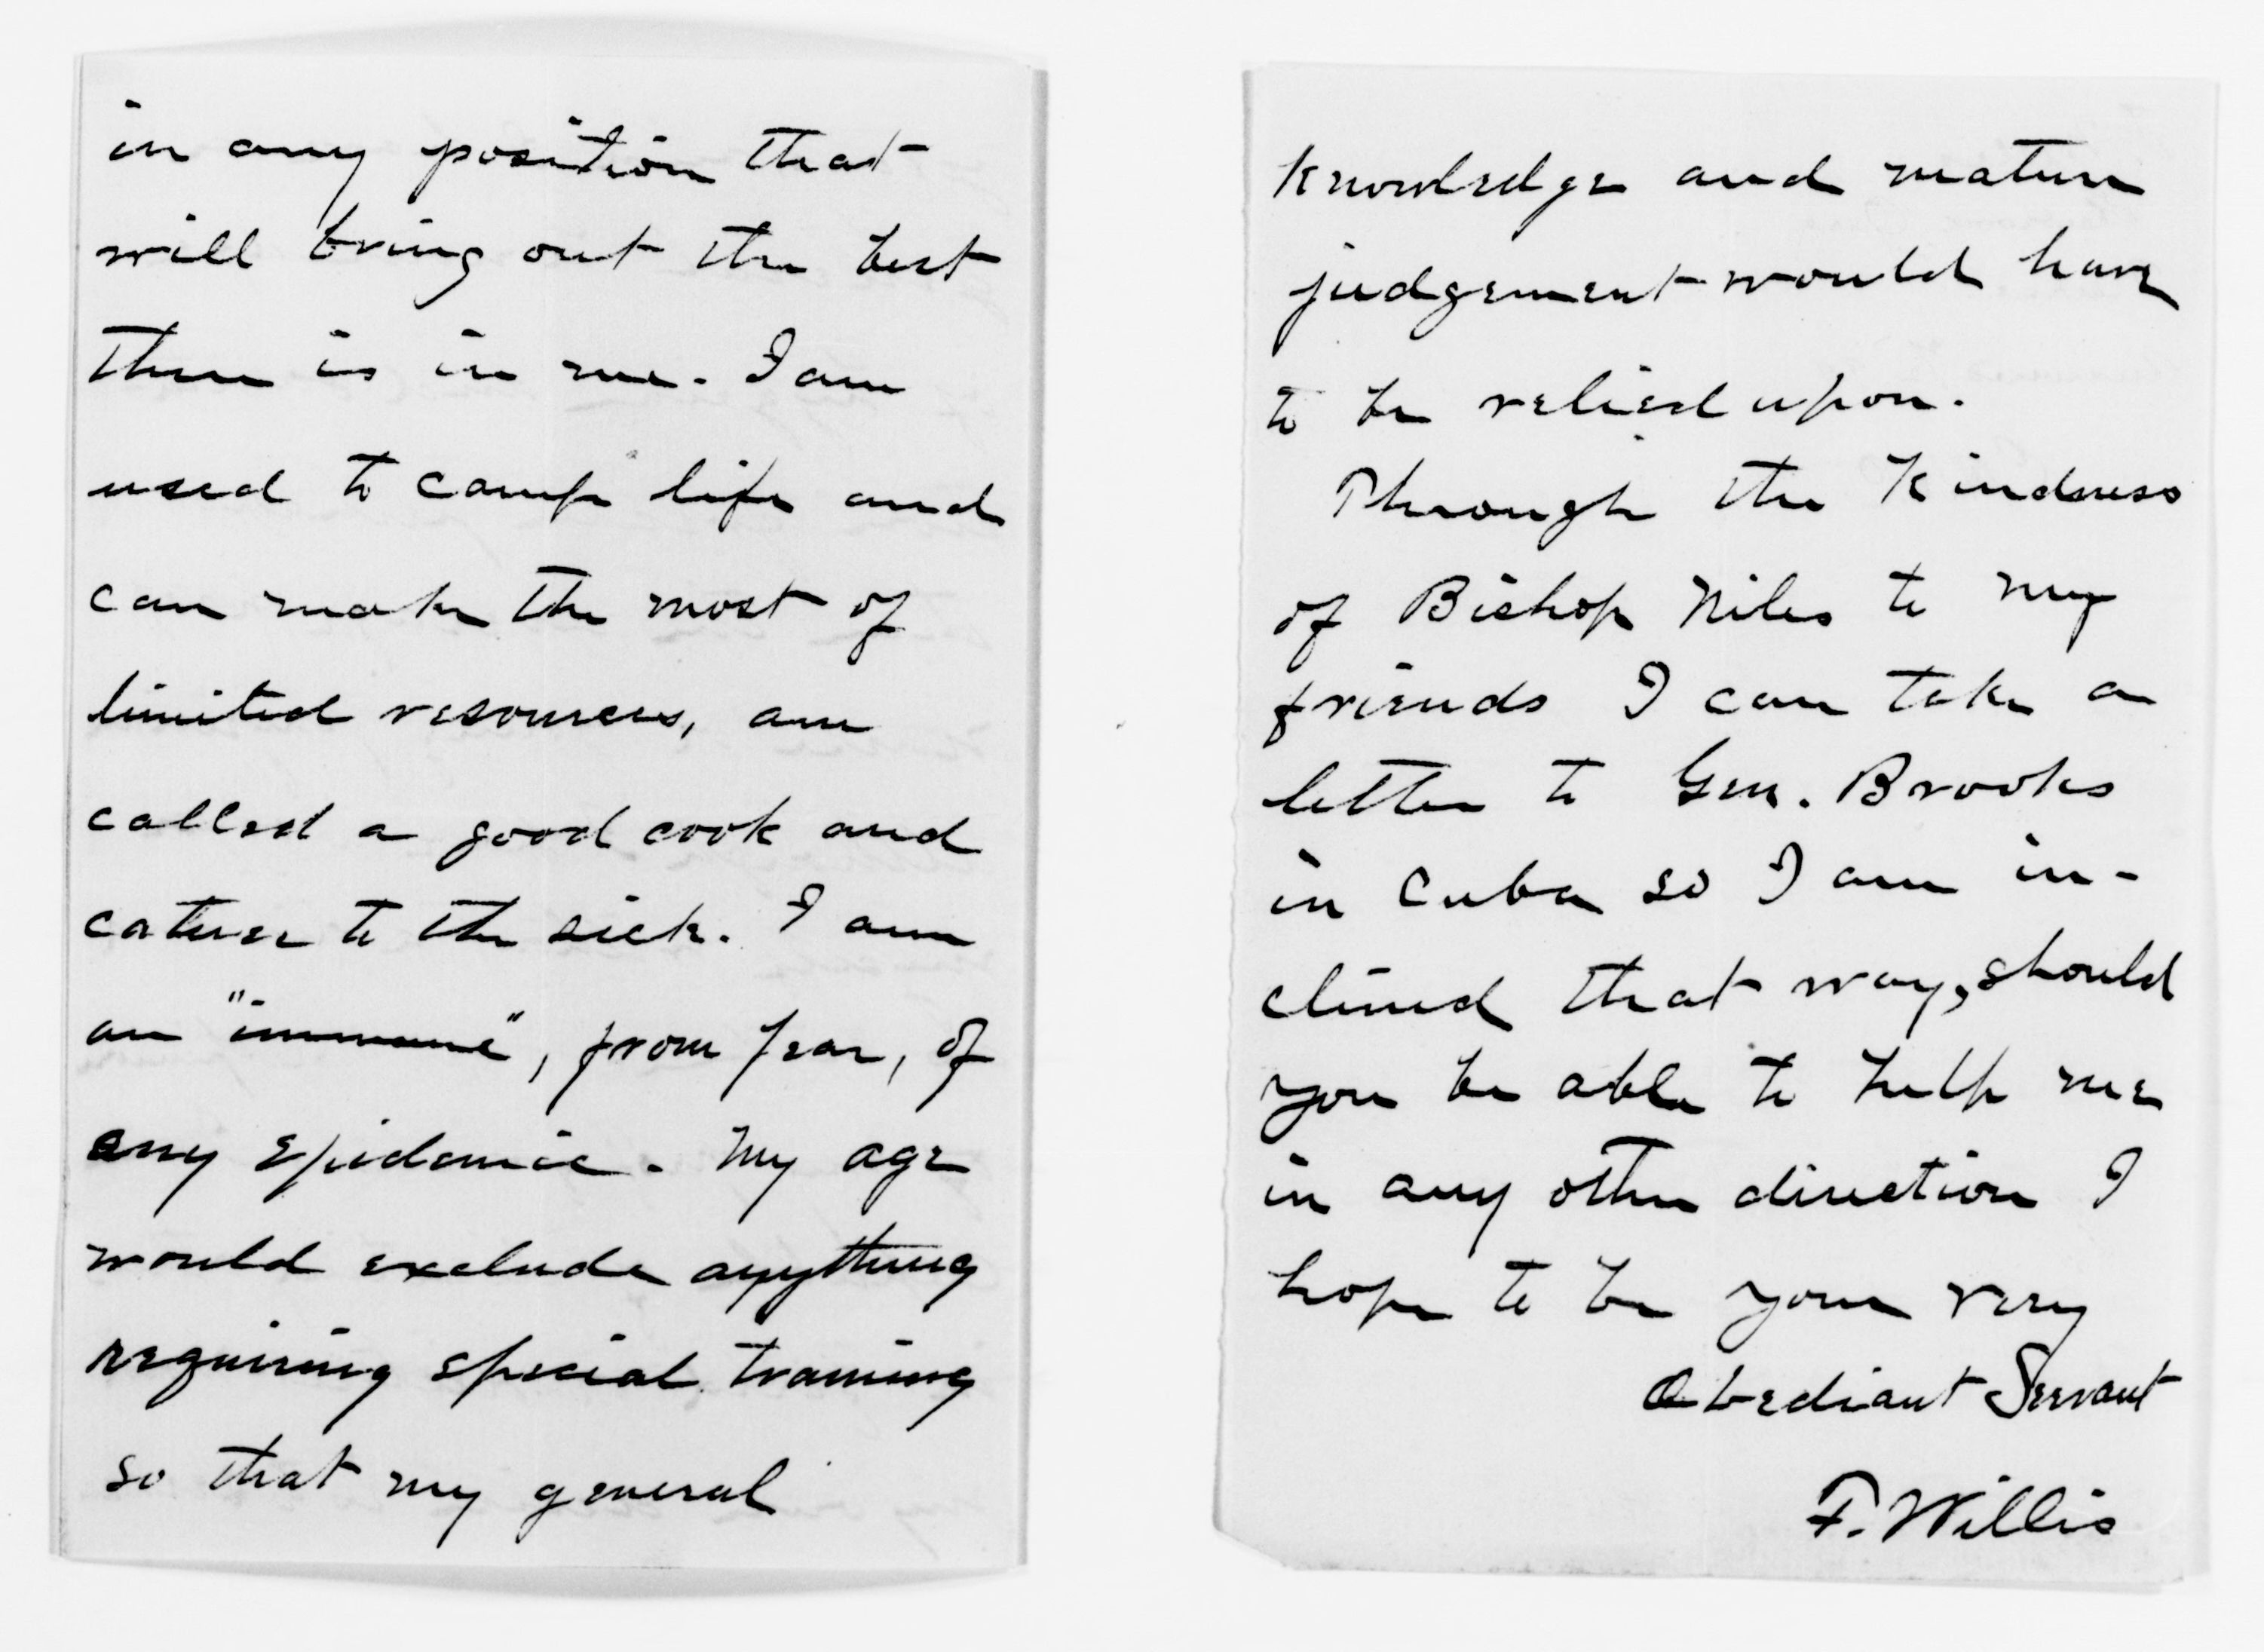 in any position that
will bring out the best
there is in me. I am
used to camp life and
can make the most of
limited resources, am
called a good cook and
caterer to the sick. I am
an "immune", from fear, of
any epidemic. My age
would exclude anything
requiring special training
so that my general
knowledge and mature
judgement would have
to be relied upon.
Through the kindness
of Bishop Niles to my
friends I can take a
letter to Gen. Brooks
in Cuba so I am in-
clined that way, should
you be able to help me
in any other direction I
hope to be your very
Obediant Servant
F. Willis